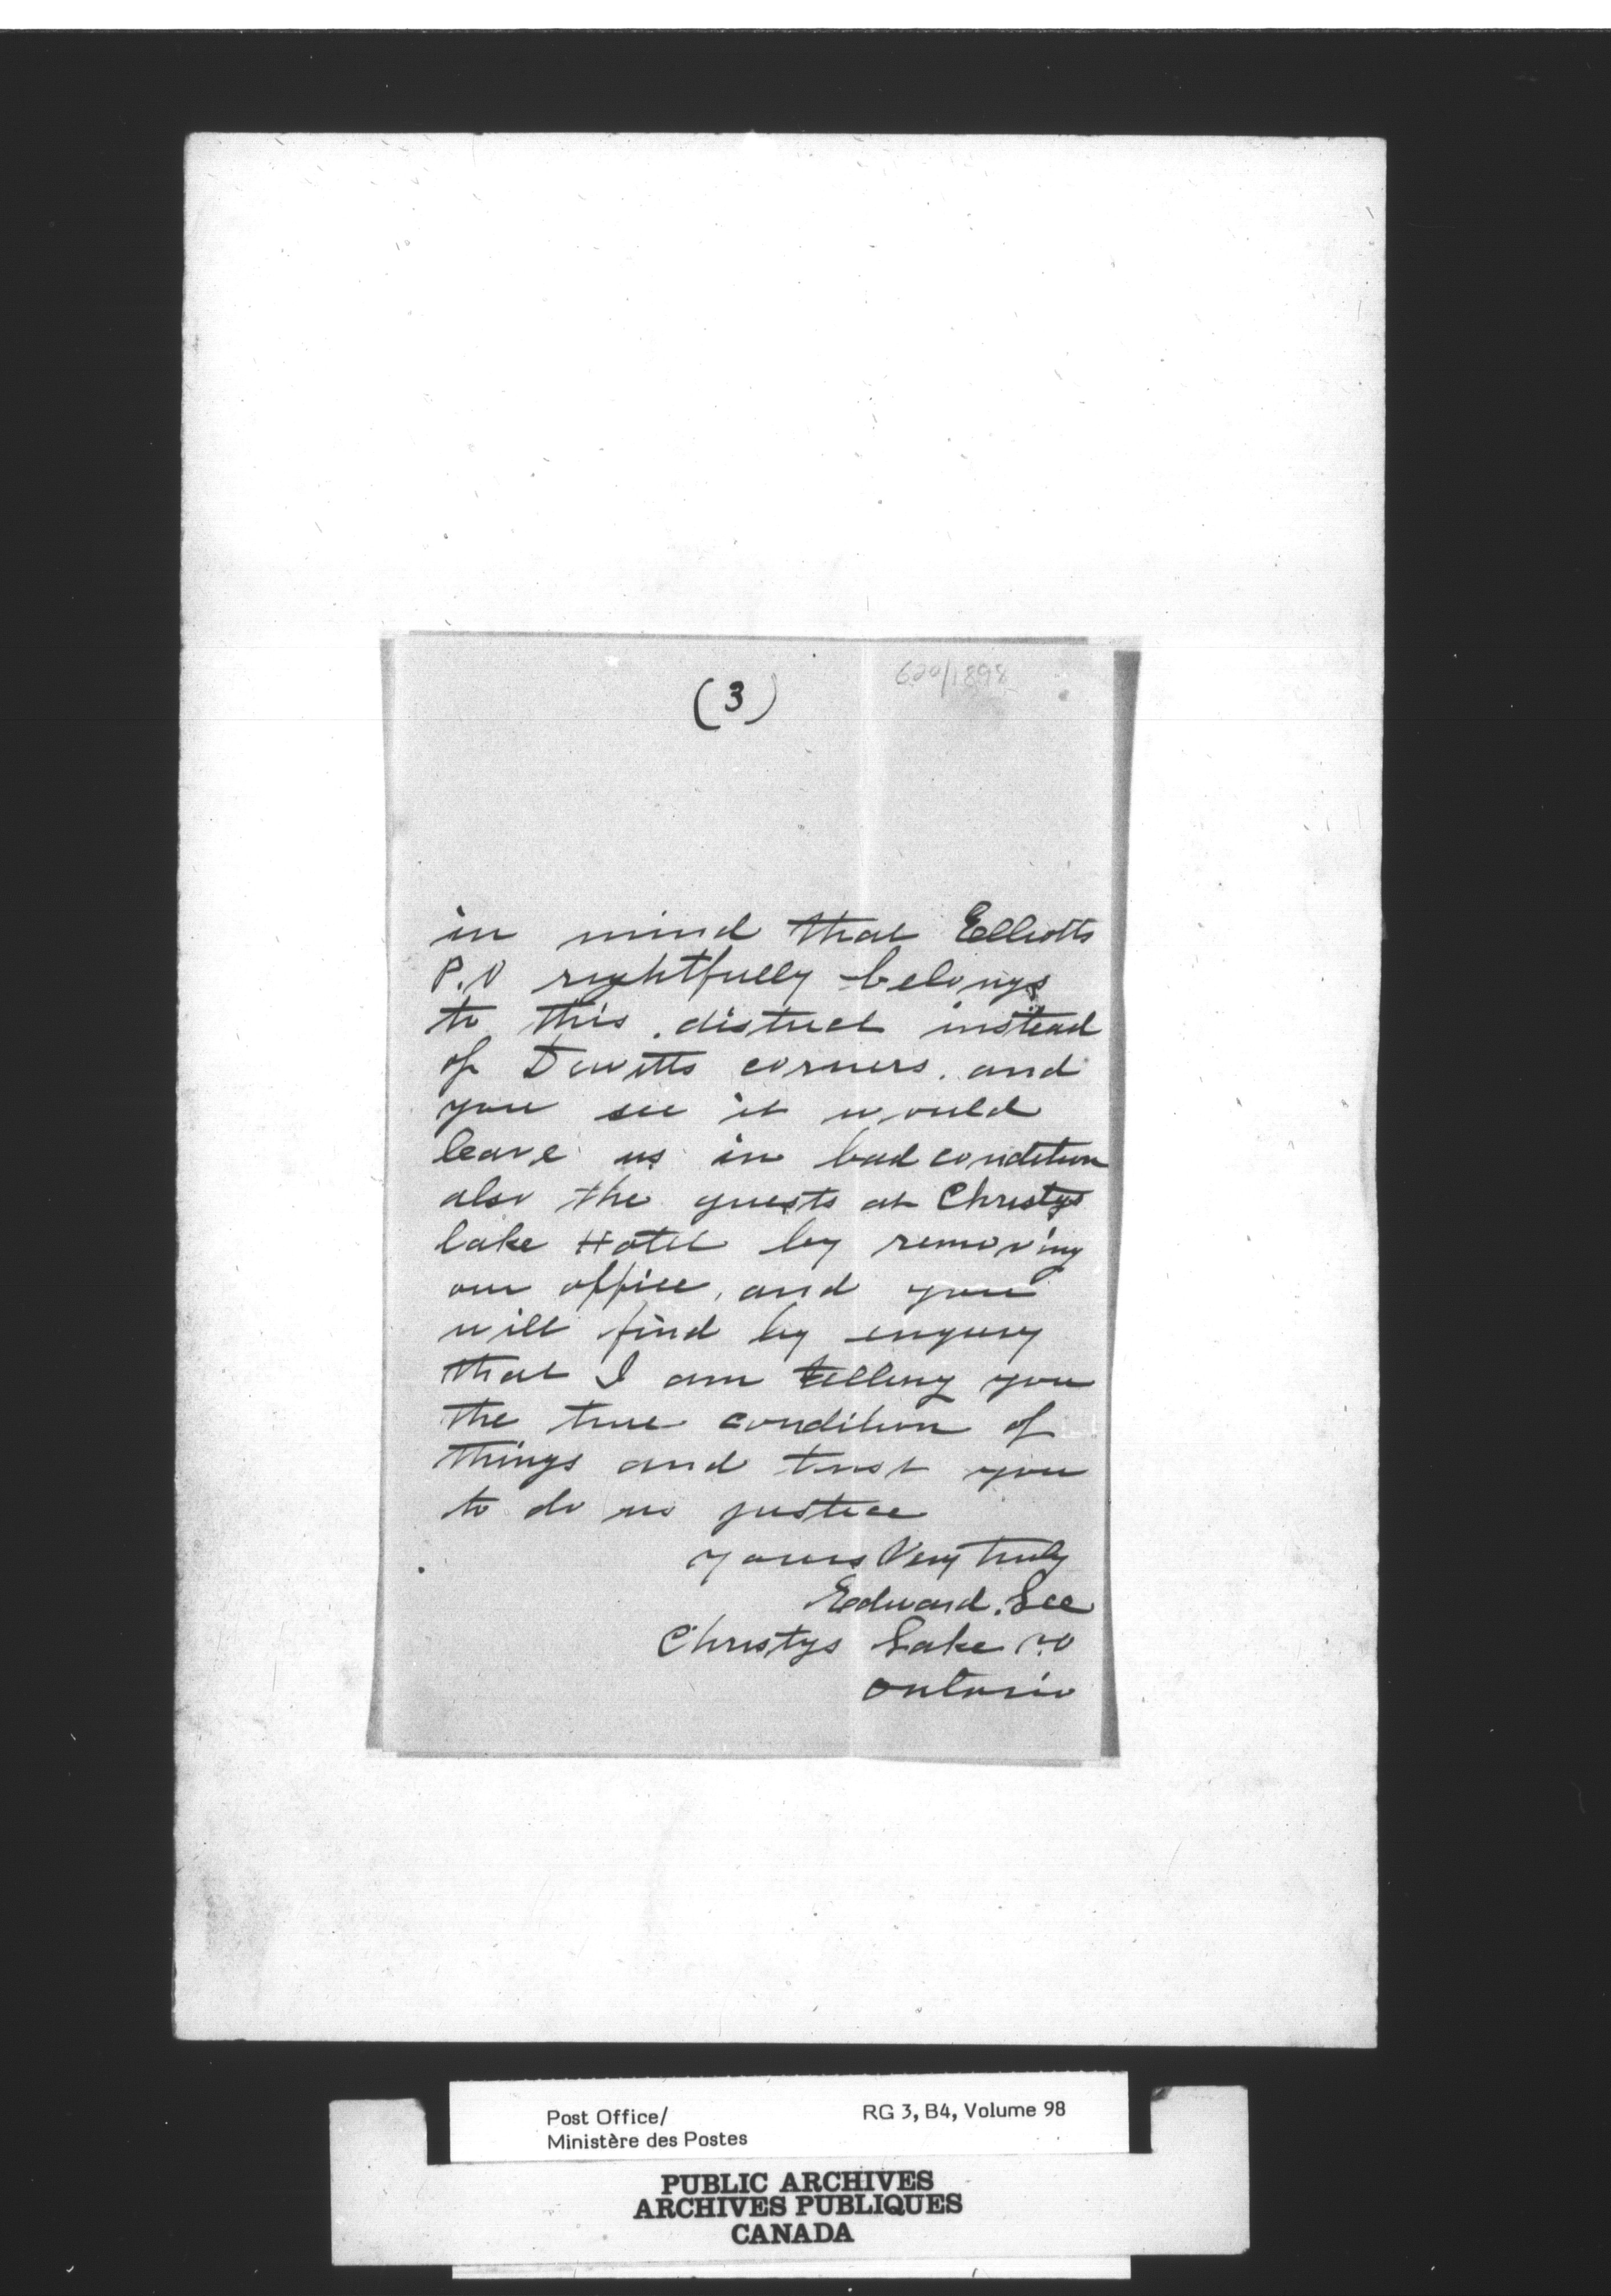 620/1898
(3)
in mind that Elliotts
P.O rightfully belongs
to this district instead
of Dewitts corners. and
you see it would
leave us in bad condition
also the guests at Christys
lake Hotel by removing
our office, and you
will find by enquiry
that I am telling you
the true condition of
things and trust you
to do us justice
yours Very truly
Edward. Lee
Christys Lake P.O
Ontario
Post Office/ RG 3, B4, Volume 98
Ministère des Postes
PUBLIC ARCHIVES
ARCHIVES PUBLIQUES
CANADA